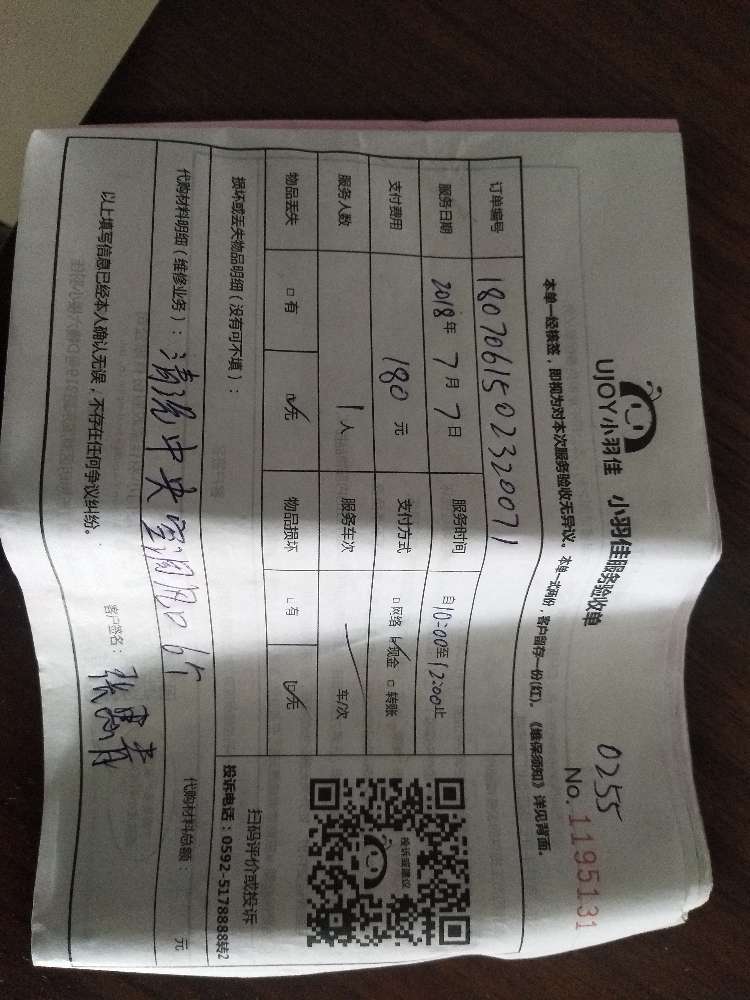 0255
UJOY小羽佳 小羽佳服务验收单 No. 1195131
本单一经核签，即视为对本次服务验收无异议。本单一式两份，客户留存一份(红)。《维保须知》详见背面。
订单编号 1807061502320071
服务日期 2018年7月7日 服务时间 自10:00至12:00止
支付费用 180元 支付方式 □网络 ☑现金 □转账
服务人数 1人 服务车次 / 车/次
物品丢失 □有 ☑无 物品损坏 □有 ☑无
损坏或丢失物品明细（没有可不填）：
投诉或建议
扫码评价或投诉
投诉电话：0592-5178888转2
代购材料明细（维修业务）：清洗中央空调风口6个 代购材料总额： 元
以上填写信息已经本人确认无误，不存在任何争议纠纷。 客户签名：